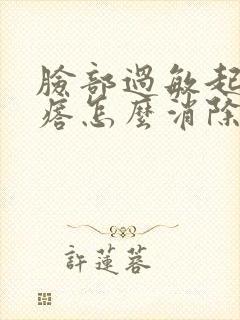 臉部過敏起
痞怎麼消除
許蓮蓉